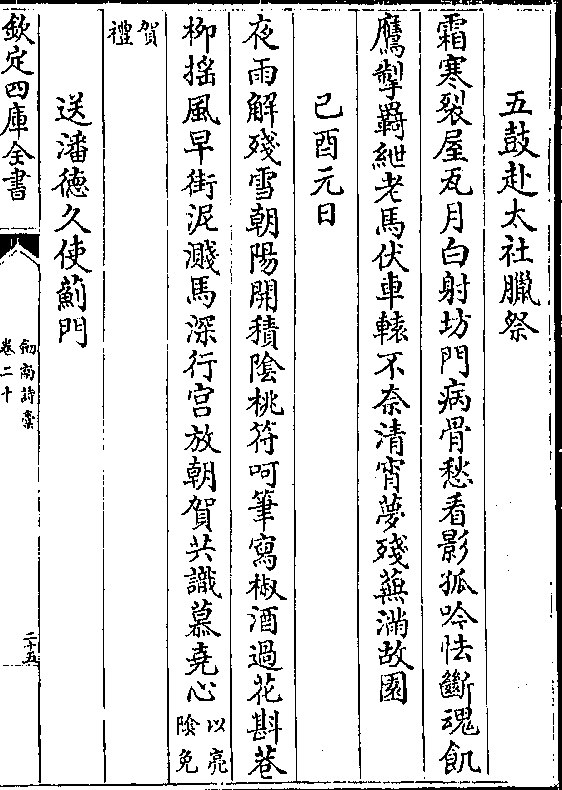 五鼓赴太社臘祭
霜寒裂屋瓦月白射坊門病骨愁看影孤吟怯斷魂飢
鷹掣羇紲老馬伏車轅不奈清宵夢殘蕪滿故園
己酉元日
夜雨解殘雪朝陽開積陰桃符呵筆寫椒酒過花斟巷
柳揺風早街泥濺馬深行宮放朝賀共識慕堯心以亮
陰免
賀
禮
送潘德久使薊門
欽定四庫全書
劒南詩稾
卷二十
二十五